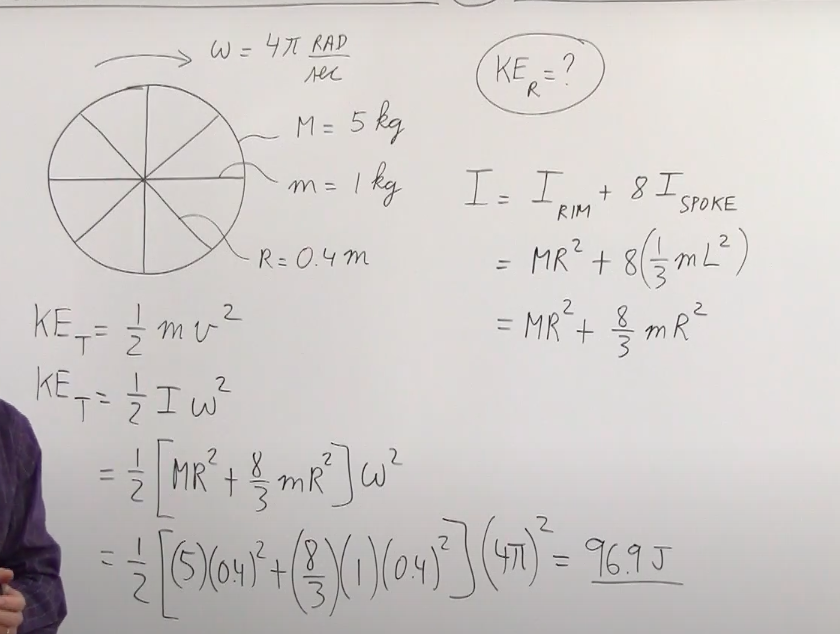 ω = 4π RAD/sec
KE_R = ?
M = 5 kg
m = 1 kg
R = 0.4 m
I = I_RIM + 8 I_SPOKE
= MR² + 8(1/3 mL²)
= MR² + 8/3 mR²
KE_T = 1/2 m v²
KE_T = 1/2 I ω²
= 1/2 [MR² + 8/3 mR²] ω²
= 1/2 [(5)(0.4)² + (8/3)(1)(0.4)²] (4π)² = 96.9 J